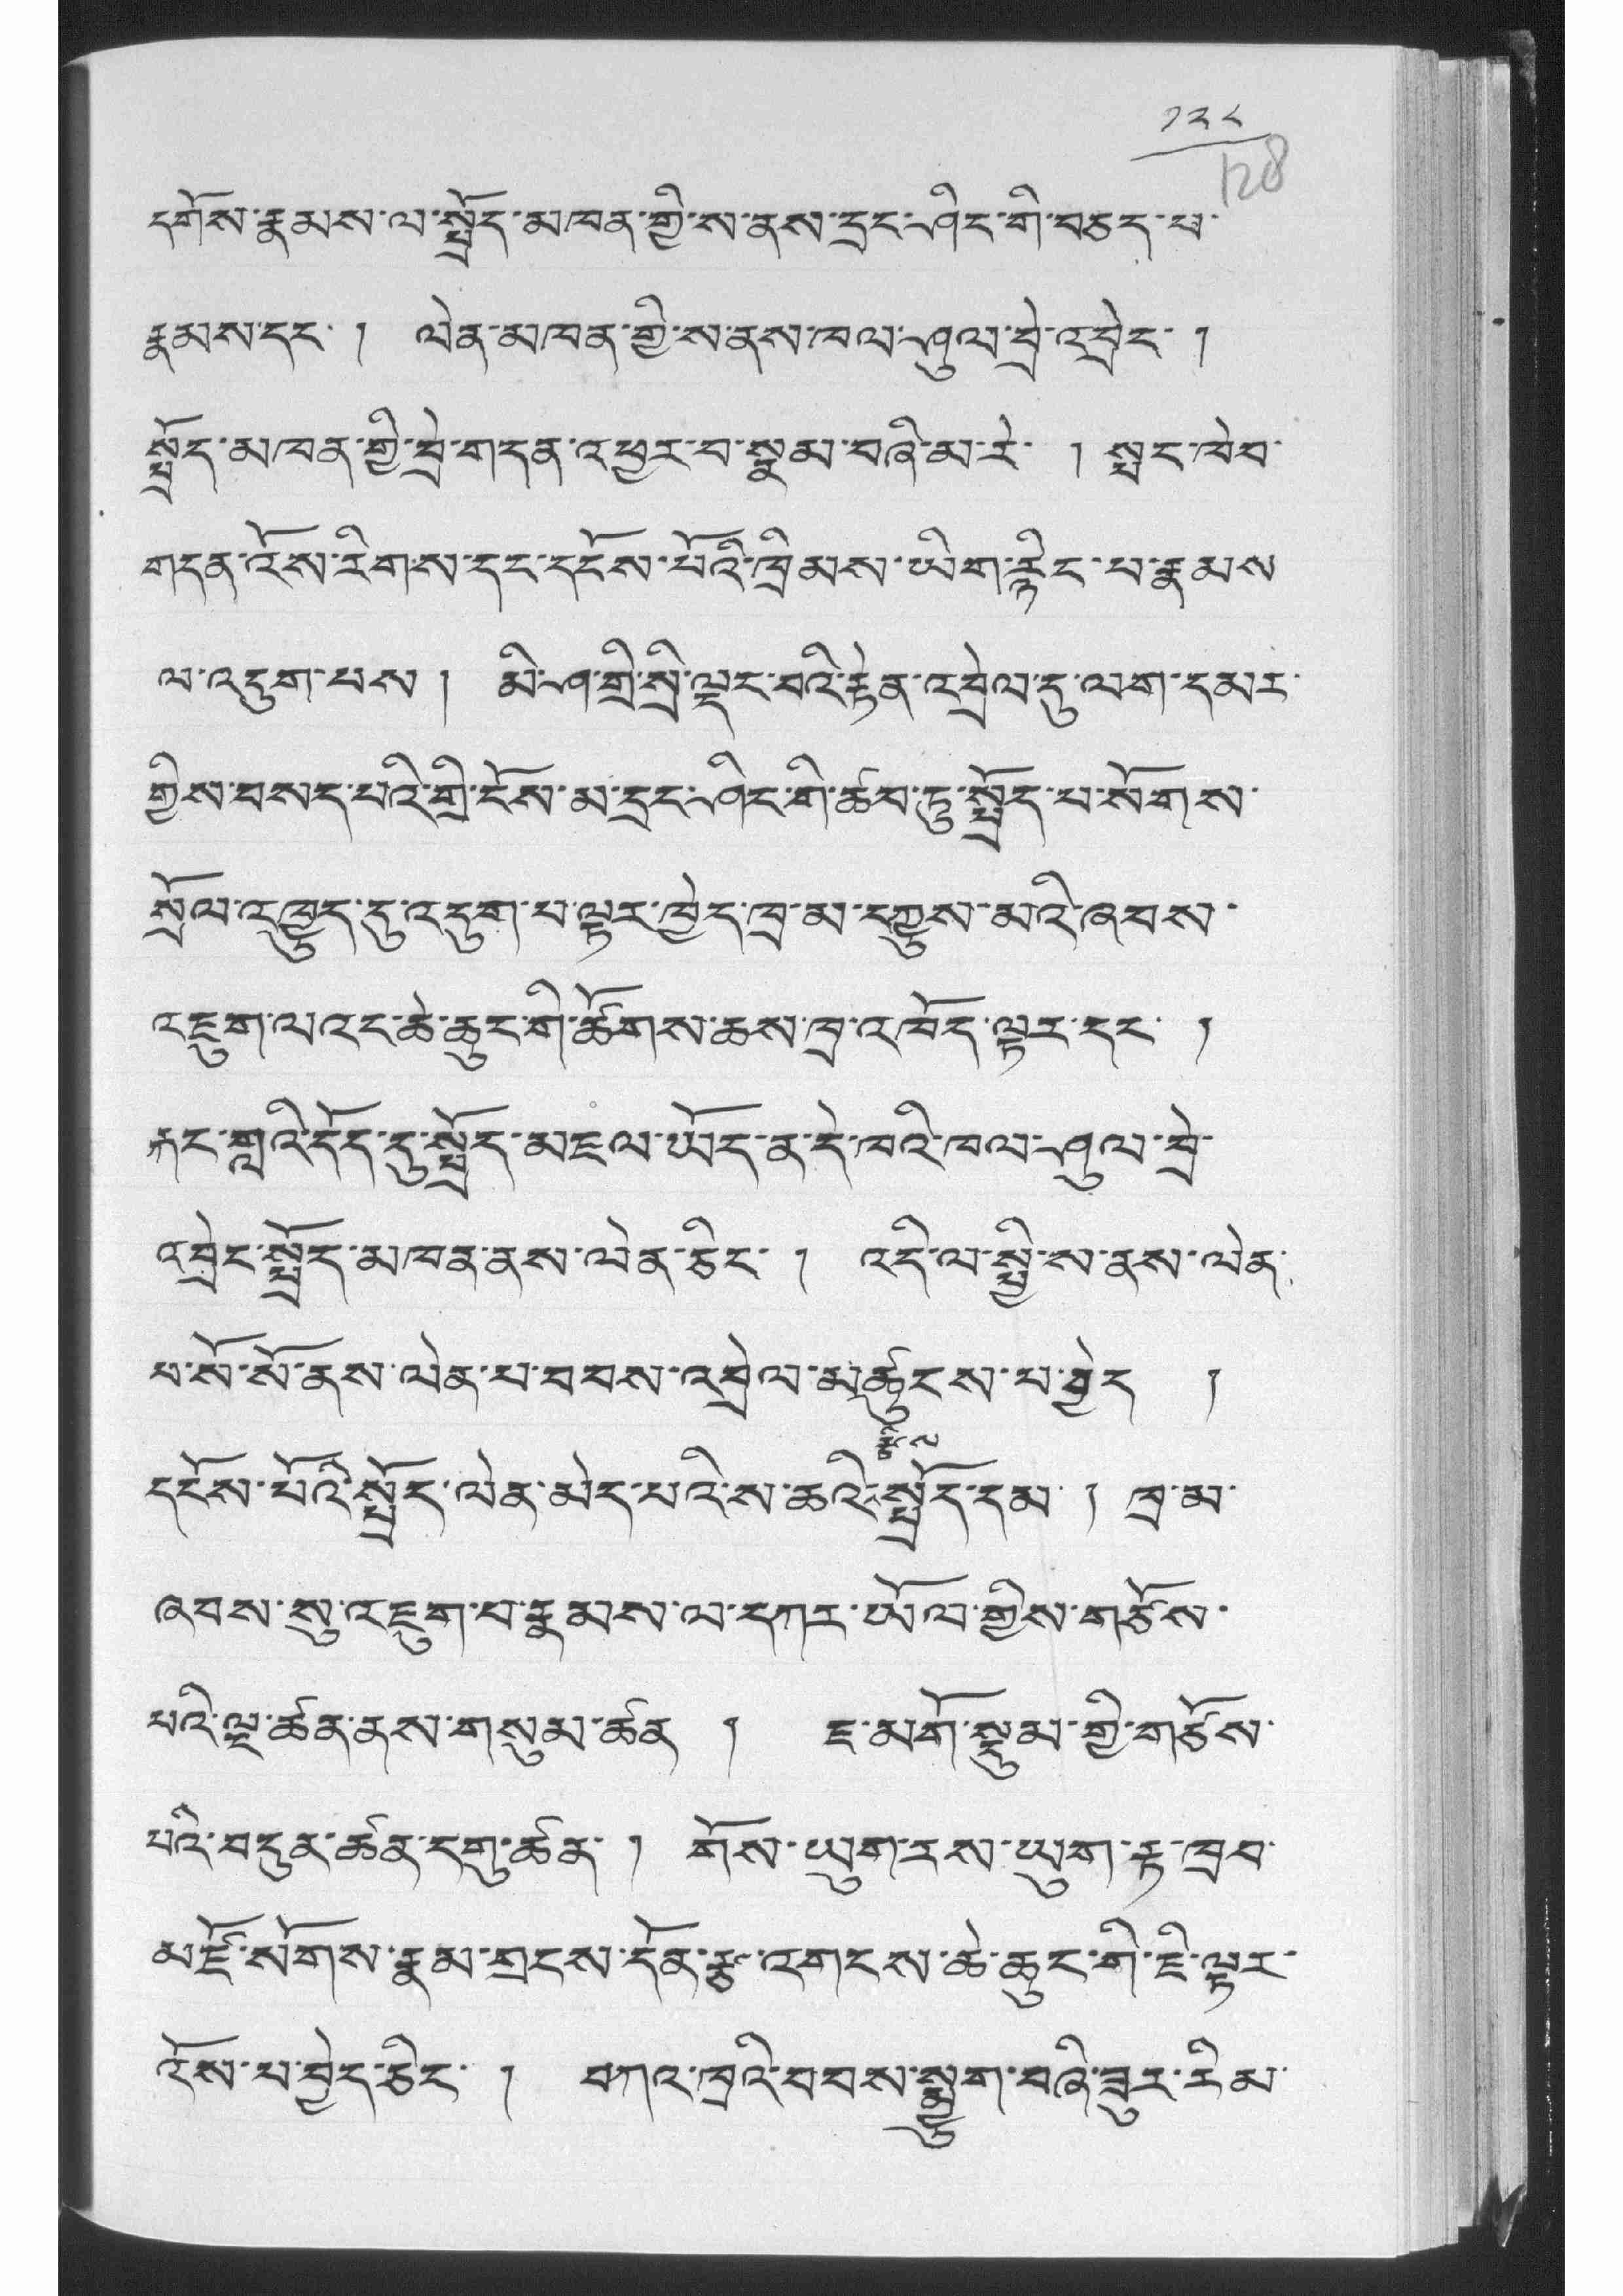 ༡༢༨
128
དགོས་རྣམས་ལ་སྤྲོད་མཁན་གྱི་ས་ནས་དྲང་ཤིང་གི་བཅད་པ་
རྣམས་དང་། ལེན་མཁན་གྱི་ས་ནས་ཁལ་ཤུལ་བྲེ་འབྲེང་།
སྤྲོད་མཁན་གྱི་བྲེ་གདན་འཕྱར་བ་སྣམ་བཞི་མ་རེ་། སྤང་ཁེབ་
གདན་འོས་རིགས་དང་དངོས་པོའི་ཁྲིམས་ཡིག་རྙིང་པ་རྣམས
ལ་འདུག་པས། མི་ཤ་གྲི་སྲི་ལྡང་བའི་རྟེན་འབྲེལ་དུ་ལག་དམར་
གྱིས་བསད་པའི་གྲི་ངོས་མ་དྲང་ཤིང་གི་ཚབ་ཏུ་སྤྲོད་པ་སོགས་
སྲོལ་འཁྱུད་དུ་འདུག་པ་ལྟར་བྱེད་ཁྲ་མ་དཀྱུས་མའི་ཞབས་
འཇུག་ལའང་ཆེ་ཆུང་གི་ཚོགས་ཆས་ཁྲ་འཁོད་ལྟར་དང་།
རྐང་གླའི་དོད་དུ་སྤྲོད་མཇལ་ཡོད་ན་དེ་ཁའི་ཁལ་ཤུལ་བྲེ་
འབྲེང་སྤྲོད་མཁན་ནས་ལེན་ཅིང་། འདི་ལ་སྤྱི་ས་ནས་ལེན་
པ་སོ་སོ་ནས་ལེན་པ་བབས་འབྲེལ་མཚུངས་པ་བྱེད །
དངོས་པོའི་སྤྲོད་ལེན་མེད་པའི་ས་ཆའི་སྤྲོད་དམ། ཁྲ་མ་
ཞབས་སུ་འཇུག་པ་རྣམས་ལ་དཀར་ཡོལ་གྱིས་གཙོས་
པའི་ལྔ་ཚན་ནས་གསུམ་ཚན། ཇ་མགོ་སྡུམ་གྱི་གཙོས་
པའི་བདུན་ཚན་དགུ་ཚན་། གོས་ཡུག་རས་ཡུག་རྟ་ཁྲབ་
མཛོ་སོགས་རྣམ་གྲངས་དོན་རྩ་འགངས་ཆེ་ཆུང་གི་ཇི་ལྟར་
འོས་པ་བྱེད་ཅིང་། བཀའ་ཁྲའི་བབས་སྨྱུག་བཞི་ཟུར་རིམ་